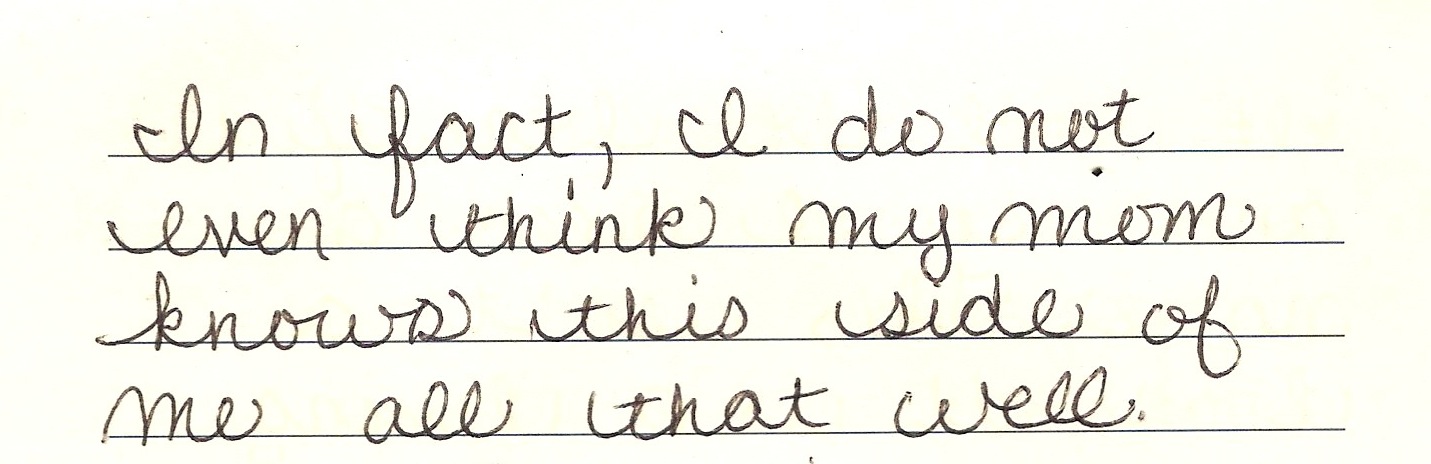 In fact, I do not
even think my mom
knows this side of
me all that well.